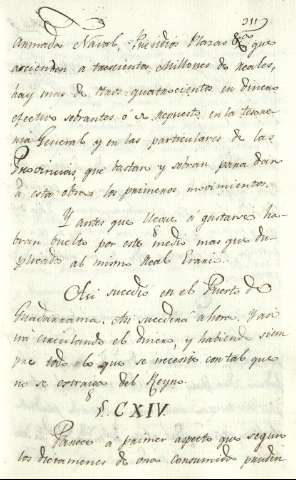 211
Armada Naval, Presidios Plazas &c. que
ascienden a trescientos Millones de Reales,
hay mas de otros quatrocientos en dinero
efectivo sobrantes ó de repuesto en la tesore
ria General, y en las particulares de las
Provincias, que bastan y sobran para dar
à esta obra los primeros movimientos.
Y antes que llegue a gastarse ha
bran buelto por este medio mas que du
plicado al mismo Real Erario.
Asi sucedio en el Puerto de
Guadarrama. Asi sucederá ahora. Para
circulando el dinero, y habiendo siem
pre todo lo que se necesite con tal que
no se extraiga del Reyno
§. CXIV.
Parece à primer aspecto que segun
los dictamenes de una Consumada pruden